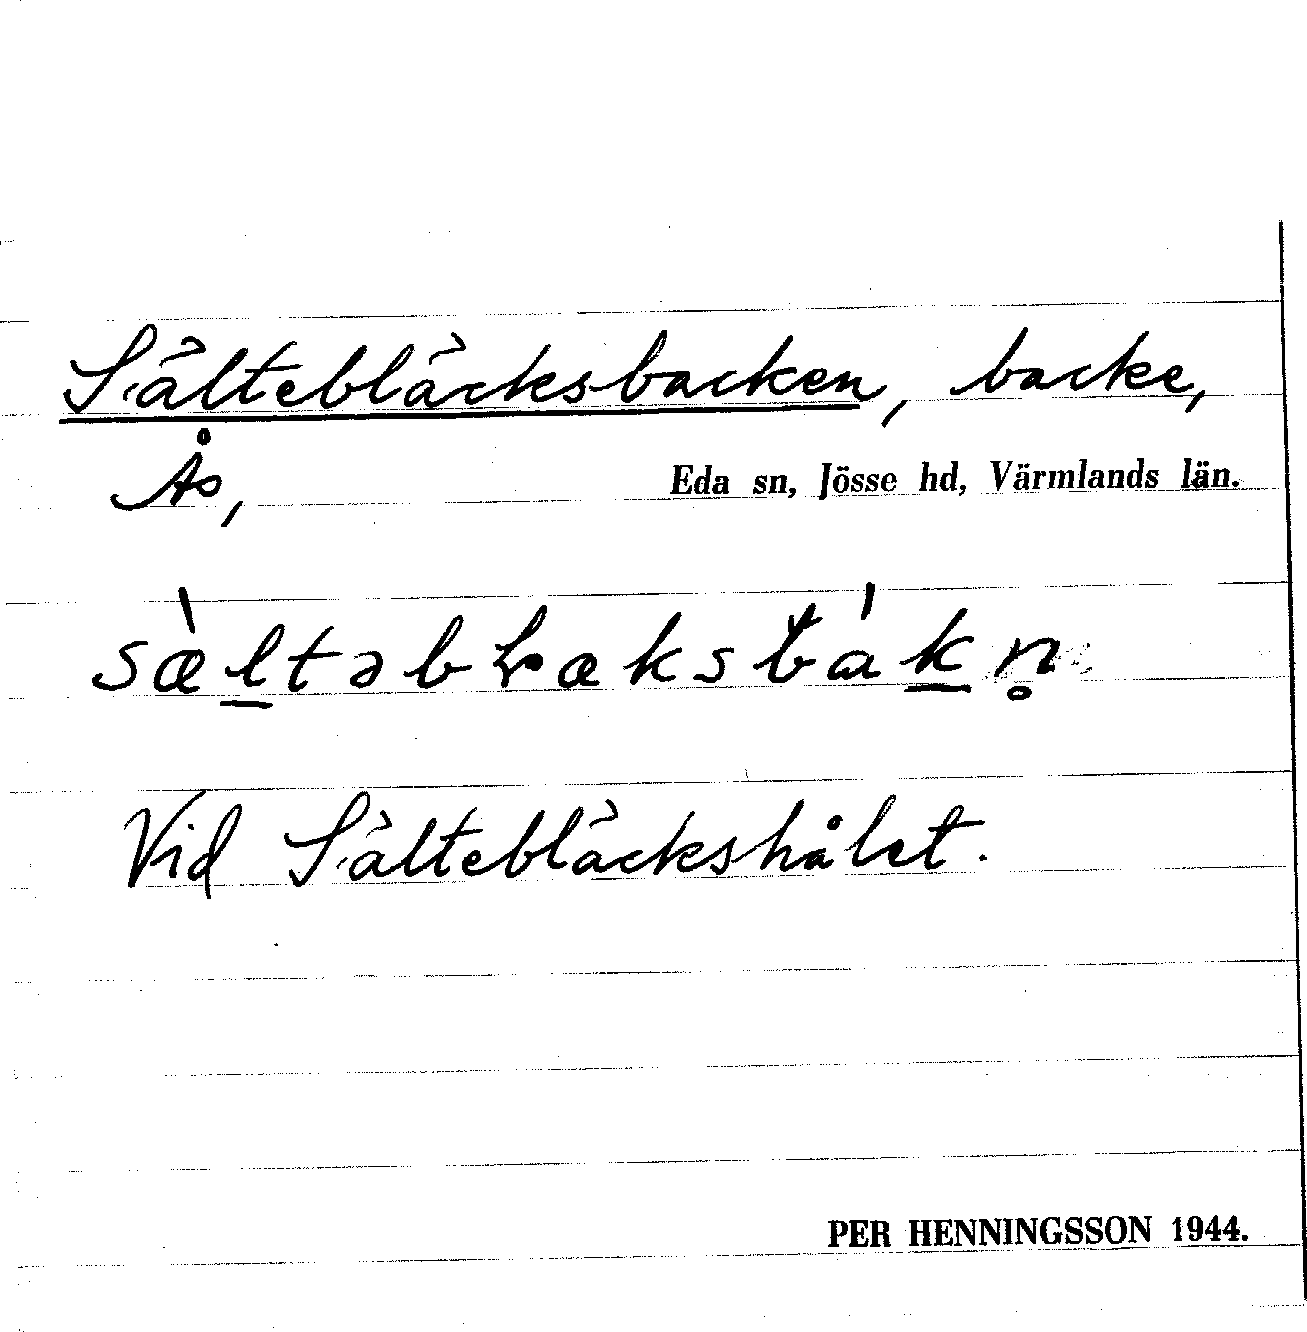 Sältebläcksbacken, backe,
Ås, Eda sn, Jösse hd, Värmlands län.
sæ̀l̲təbɽæksbák̲n̥
Vid Sältebläckshålet.
PER HENNINGSSON 1944.